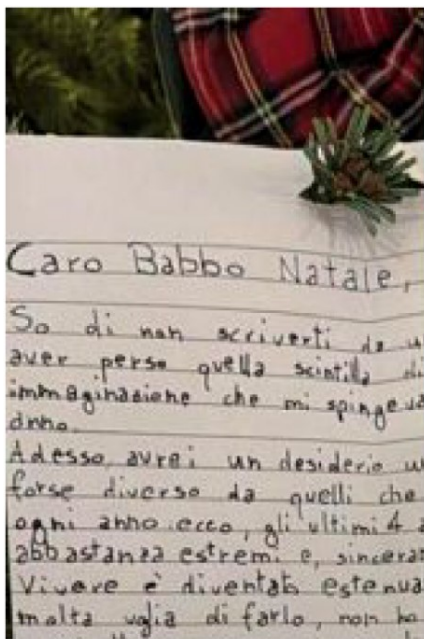 Caro Babbo Natale,
So di non scriverti da u
aver perso quella scintilla di
immaginazione che mi spingeva
anno.
Adesso, avrei un desiderio u
forse diverso da quelli che
ogni anno: ecco, gli ultimi 4 a
abbastanza estremi e, sincera
Vivere è diventato estenua
molta voglia di farlo, non ho